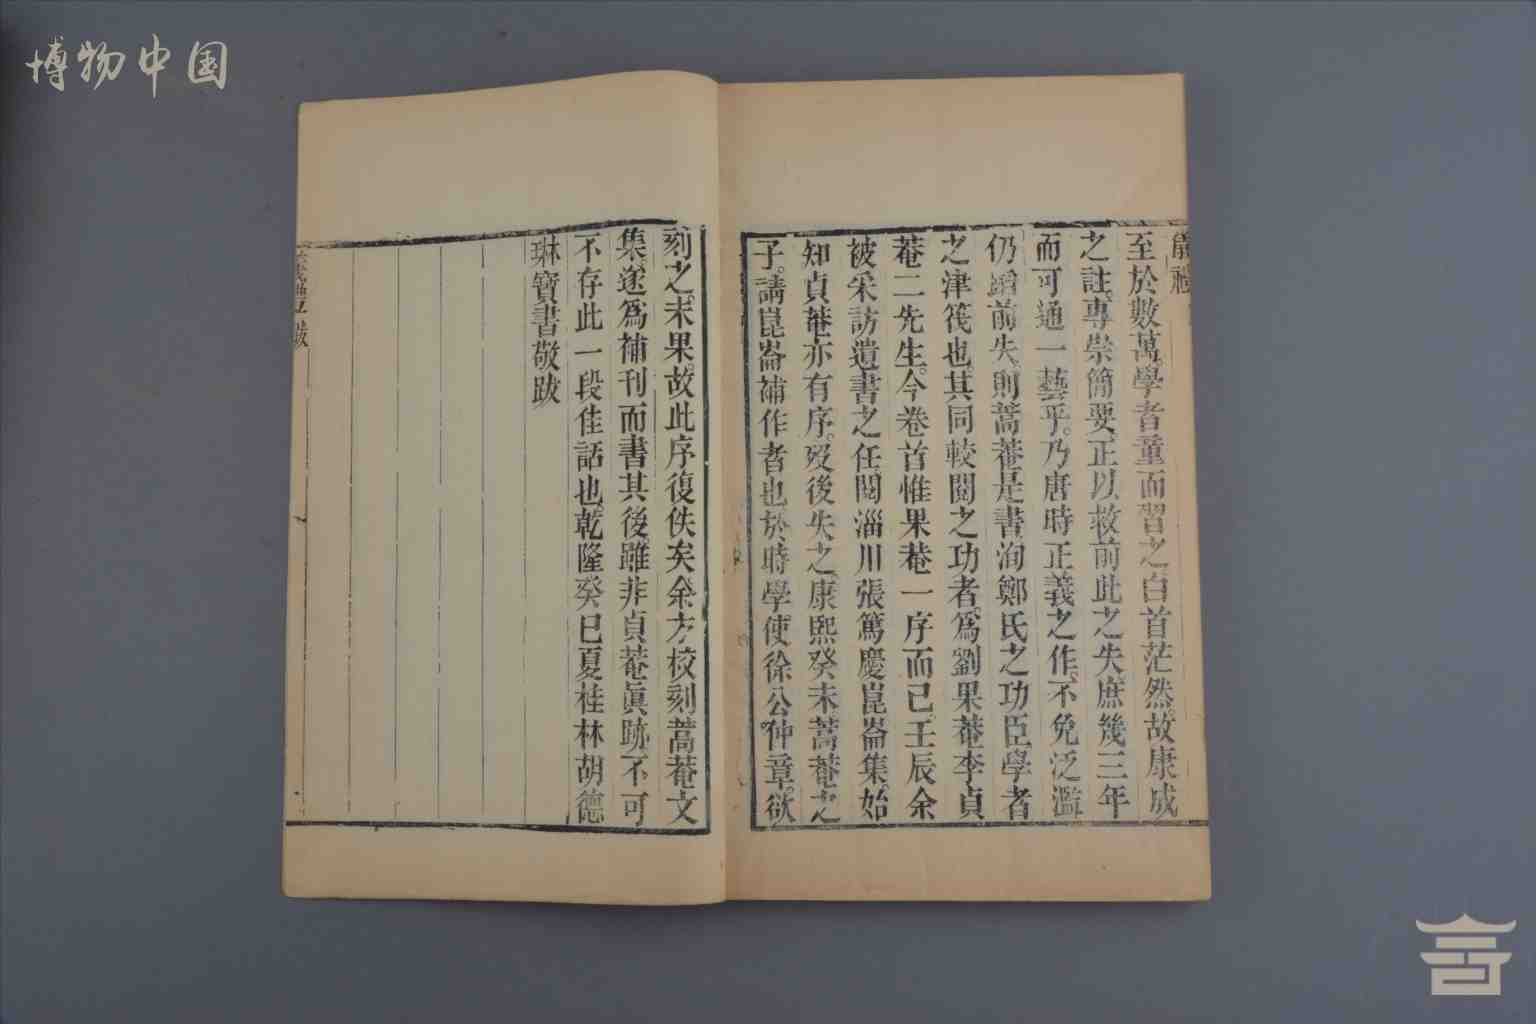 博物中国
至於數萬學者童而習之白首茫然故康成
之註專崇簡要正以救前此之失庶幾三年
而可通一藝乎乃唐時正義之作不免泛濫
仍蹈前失則蒿菴是書洵鄭氏之功臣學者
之津筏也其同較閱之功者爲劉果菴李貞
菴二先生今卷首惟果菴一序而已壬辰余
被采訪遺書之任閱淄川張篤慶崑崙集始
知貞菴亦有序歿後失之康熙癸未蒿菴之
子請崑崙補作者也於時學使徐公仲章欲
刻之未果故此序復佚矣余方校刻蒿菴文
集遂爲補刊而書其後雖非貞菴眞跡不可
不存此一段佳話也乾隆癸巳夏桂林胡德
琳寶書敬跋